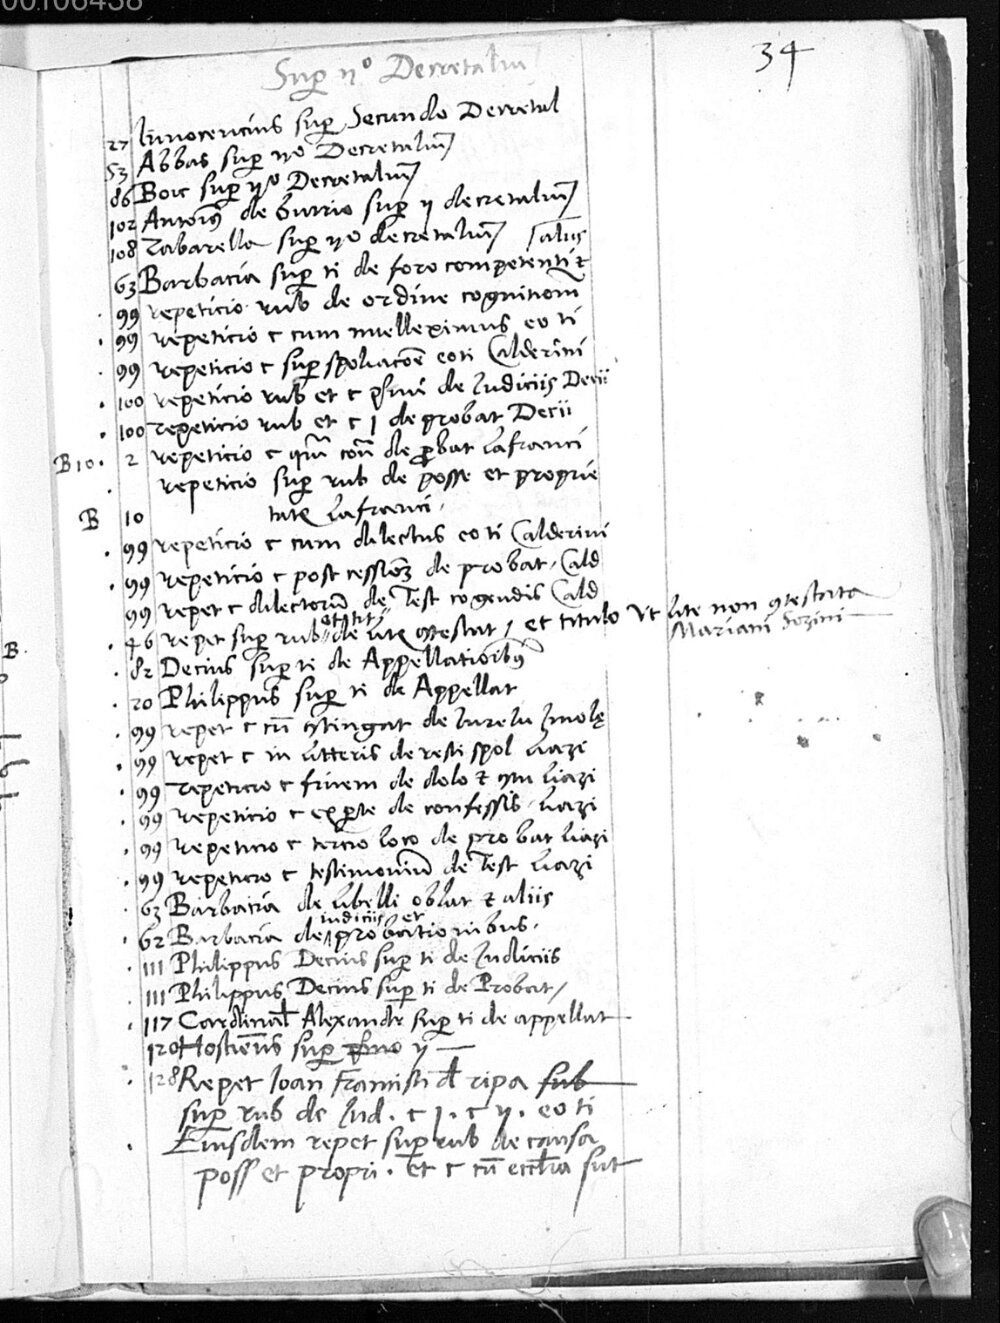 00106438
34
Sup ijº Decretaliũ
27 Innocencius sup Secundo Decretal
53 Abbas sup ijº Decretaliũ
86 Boic sup ijº Decretaliũ
102 Antoniº de butrio sup ij decretaliũ
108 Zabarella sup ijº decretaliũ
63 Barbacia sup ti de foro competenti &
99 repeticio rub de ordine cognitionũ
99 repeticio c cum intelleximus eo ti
99 repeticio c sup spoliacoẽ eo ti Calderini
100 repeticio rub et c de Judiciis Decii
100 repeticio rub et c 1 de probat Decii
B 10 2 repeticio c de probat Lafranci
repeticio sup rub de posse et proprie
B 10 tate Lafranci
99 repeticio c cum dilectus eo ti Calderini
99 repeticio c post cessionẽ de probat Cald
99 repet c dilectorũ de Test cogendis Cald
46 repet sup rub et tit de lite 9testat / et titulo Vt lite non 9testata
Mariani Sozini
82 Decius sup ti de Appellationibº
20 Philippus sup ti de Appellat
99 repet c cũ 9tingat de Jureiu Imole
99 repet c in litteris de resti spol Liazi
99 repeticio c finem de dolo & 9tu Liazi
99 repeticio c ex parte de confessis Liazi
99 repeticio c tercio loco de probat Liazi
99 repeticio c testimoniũ de Test Liazi
63 Barbacia de libelli oblat & aliis
iudiciis et
62 Barbacia de probationibus
111 Philippus Decius sup ti de Judiciis
111 Philippus Decius sup ti de Probat
117 Cardinal Alexandr sup ti de appellat
120 Hostiensis sup ij
128 Repet Joan Francisci d ripa sub
sup rub de Jud . c 1 . c ij . eo ti
Eiusdem repet sup rub de causa
poss et propri . et c cũ ecclia sut